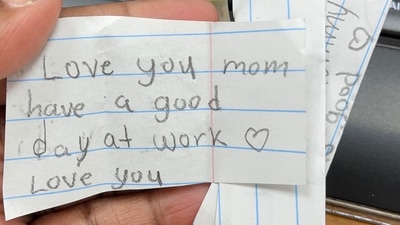 Love you mom
have a good
day at work ♡
Love you